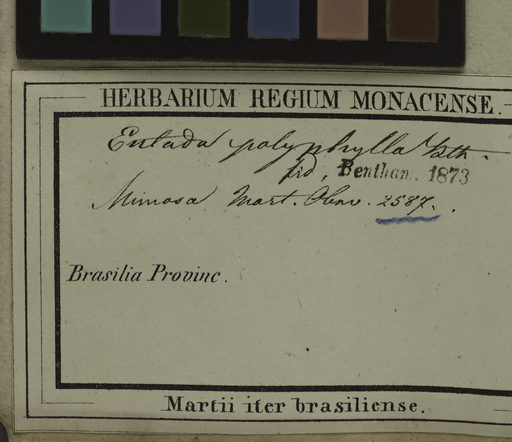 HERBARIUM REGIUM MONACENSE.
Entada polyphylla Bth.
fid, Bentham. 1873
Mimosa Mart. Obsv. 2587.
Brasilia Provinc.
Martii iter brasiliense.